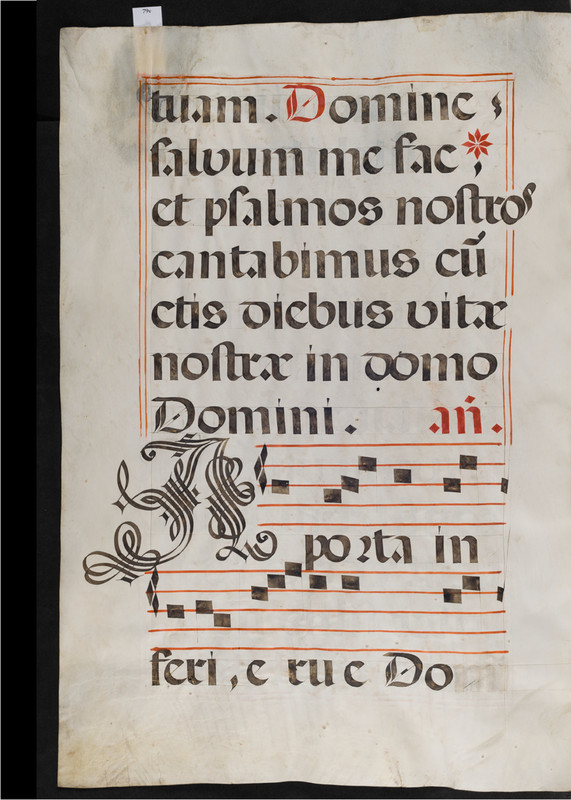 tuam. Domine,
salvum me fac *,
et psalmos nostros
cantabimus cū
ctis diebus vitæ
nostræ in domo
Domini. añ.
A porta in
feri, e rue Do